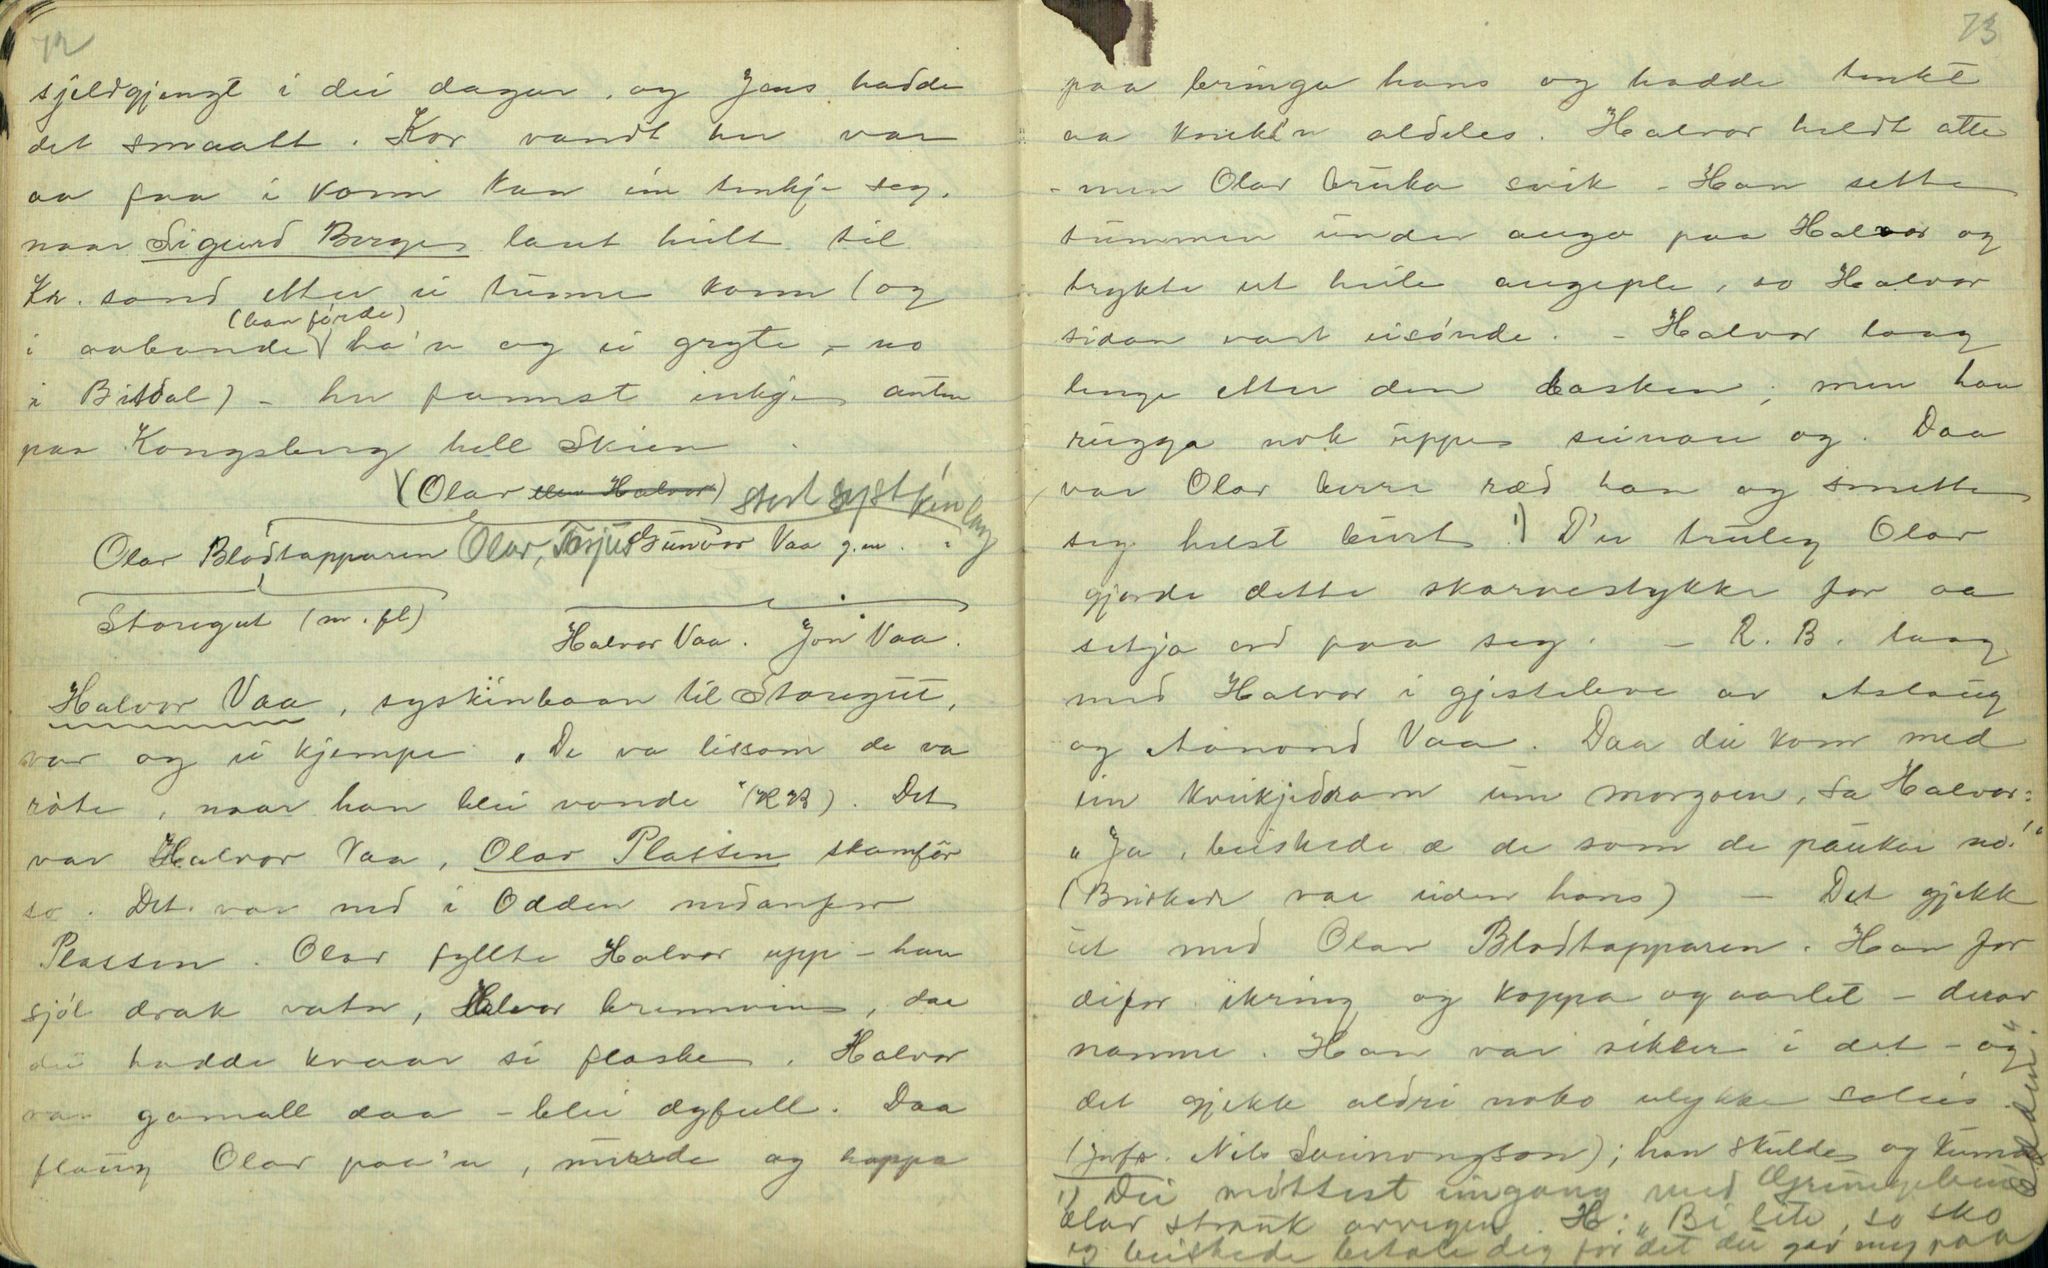 72
sjeldgjengt i dei dagar, og Jens hadde
det smaatt. Kor vandt her var
aa faa i konn kan ein tenkje seg,
naar Sigurd Berge laut heilt til
Kr. sand etter ei tunne konn (og
(han förde)
i aabonde ha'n og ei gryte, - no
i Bitdal) - her fannst inkje anten
paa Kongsberg hell Skien.
(Olav eller Halvor) stort systkinlag
Olav Blodtapparen Olav, Tarjus Gunvor Vaa g.m.
Storegut (m. fl) Halvor Vaa. Jon Vaa.
Halvor Vaa, syskinbaan til Storegut,
var og ei kjempe. "De va lissom de va
röte, naar han blei vonde" (RB). Det
var Halvor Vaa, Olav Plassen skamför
so. Det var ned i Odden nedanfor
Plassen. Olav fyllte Halvor upp - han
sjöl drak vatn, Halvor brennvin, dae
dei hadde kvaar si flaske. Halvor
var gamall daa - blei dyfull. Daa
flaug Olav paa'n, murde og hoppa
73
paa bringa hans og hadde tenkt
aa knekk'n aldeles. Halvor heldt atte
- men Olav bruka svik - Han sette
tummen under auga paa Halvor og
trykte ut heile augeple, so Halvor
sidan vart eisönde. - Halvor laag
lenge etter den basken; men han
rugga nok uppe seinare og. Daa
var Olav berre ræd han og smette
seg helst burt 1) D'er truleg Olav
gjorde dette skarvestykke for aa
setja ord paa seg. - R. B. laag
med Halvor i gjesteleve av Aslaug
og Aanond Vaa. Daa dei kom med
ein kveikjedram um morgoen, sa Halvor:
"Ja, beiskede æ de som de paukar no!"
(Beiskede var eiden hans) - Det gjekk
ut med Olav Blodtapparen. Han for
difor ikring og koppa og aarlet - derav
namne. Han var sikker i det - og
det gjekk aldri noko ulykke soleis
(Infr. Nils Sveinongson); han skulde og kunna
1) Dei möttest eingang med Grungebrui
Olav strauk av vegen. H: "Bi lite, so sko
eg beiskede betale deg for det du gav meg paa
Odden."